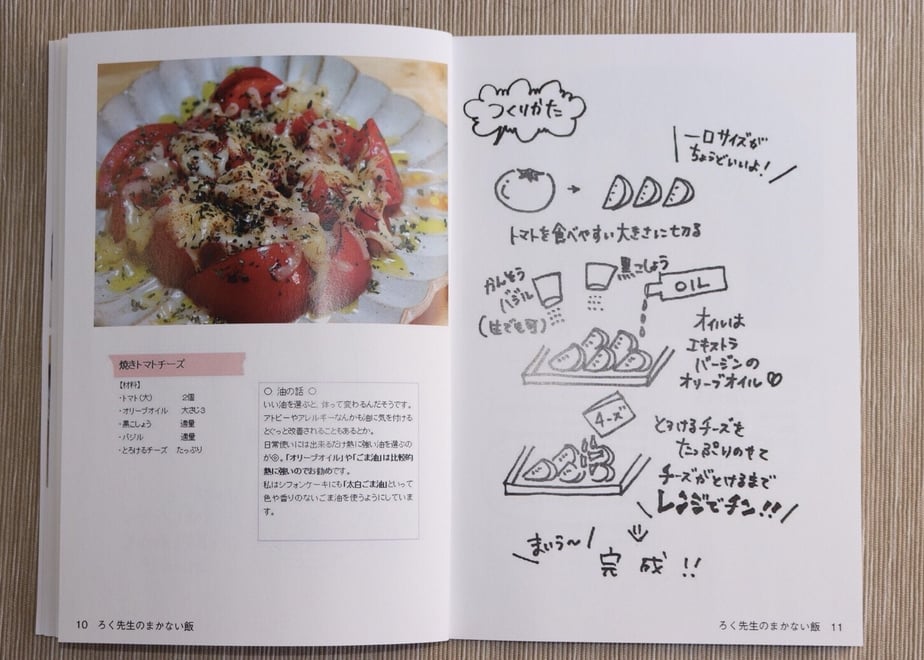 焼きトマトチーズ
【材料】
・トマト(大) 2個
・オリーブオイル 大さじ3
・黒こしょう 適量
・バジル 適量
・とろけるチーズ たっぷり
○ 油の話 ○
いい油を選ぶと、体って変わるんだそうです。
アトピーやアレルギーなんかも油に気を付ける
とぐっと改善されることもあるとか。
日常使いには出来るだけ熱に強い油を選ぶの
が◎。「オリーブオイル」や「ごま油」は比較的
熱に強いのでお勧めです。
私はシフォンケーキにも「太白ごま油」といって
色や香りのないごま油を使うようにしていま
す。
10 ろく先生のまかない飯
つくりかた
一口サイズが
ちょうどいいよ!
トマトを食べやすい大きさに切る
かんそう
バジル
(生でも可)
黒こしょう
OIL
オイルは
エキストラ
バージンの
オリーブオイル♡
チーズ
とろけるチーズを
たっぷりのせて
チーズがとけるまで
レンジでチン!!
まいう〜
完成!!
ろく先生のまかない飯 11